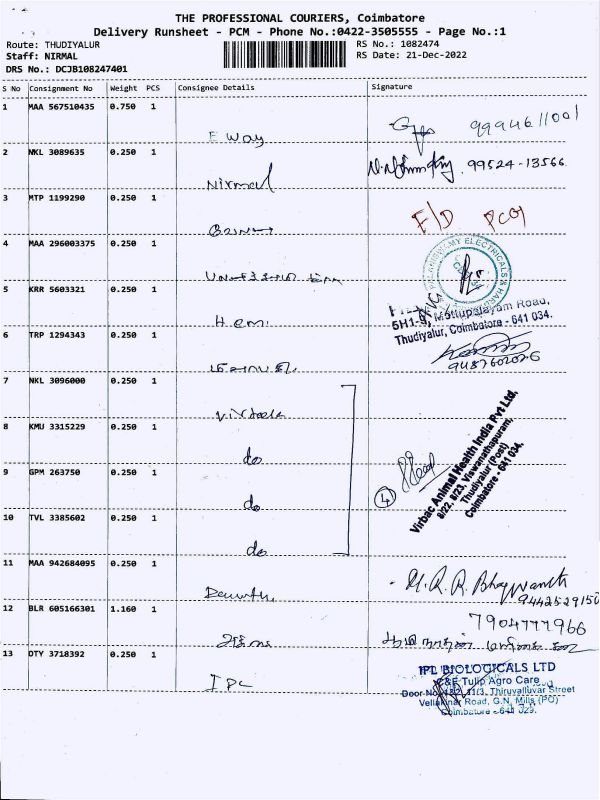 THE PROFESSIONAL COURIERS, Coimbatore
Delivery Runsheet - PCM - Phone No.:0422-3505555 - Page No.:1
Route: THUDIYALUR
Staff: NIRMAL
DRS No.: DCJB108247401
RS No.: 1082474
RS Date: 21-Dec-2022
S No Consignment No Weight PCS Consignee Details Signature
1 MAA 567510435 0.750 1
E Way 9994611001
2 NKL 3089635 0.250 1
Nirmal 99524-13566
3 MTP 1199290 0.250 1
F/D
4 MAA 296003375 0.250 1
ELECTRICALS & HARD
5 KRR 5603321 0.250 1
Hem
5H1-9, Mettupalayam Road,
Thudiyalur, Coimbatore - 641 034.
6 TRP 1294343 0.250 1
9487602026
7 NKL 3096000 0.250 1
8 KMU 3315229 0.250 1
do
9 GPM 263750 0.250 1
do
4
Virbac Animal Health India Pvt Ltd,
8/22, 8/23, Viswanathapuram,
Thudiyalur (Post)
Coimbatore - 641 034.
10 TVL 3385602 0.250 1
do
11 MAA 942684095 0.250 1
9442529150
12 BLR 605166301 1.160 1
7904777966
13 OTY 3718392 0.250 1
IPL
IPL BIOLOGICALS LTD
C&F Tulip Agro Care
Thiruvalluvar Street
Road, G.N. Mills (PO)
Coimbatore - 641 029.